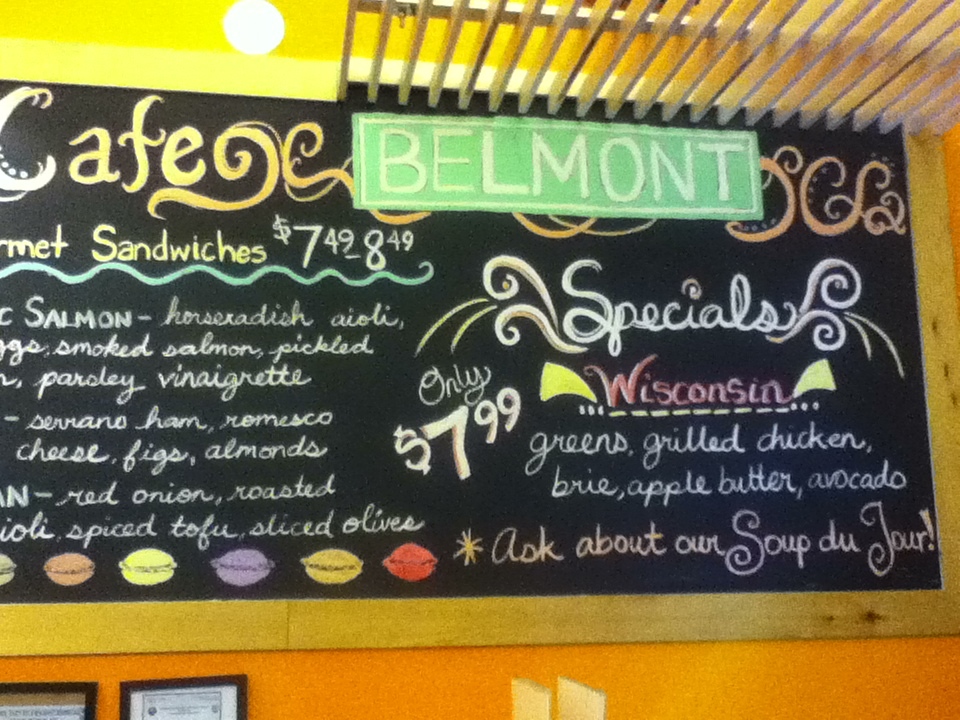 Cafe BELMONT
Sandwiches $7.49-8.49
SALMON - horseradish aioli,
smoked salmon, pickled
parsley vinaigrette
- serrano ham, romesco
cheese, figs, almonds
- red onion, roasted
spiced tofu, sliced olives
Specials
Only
$7.99
Wisconsin
greens, grilled chicken,
brie, apple butter, avocado
* Ask about our Soup du Jour!